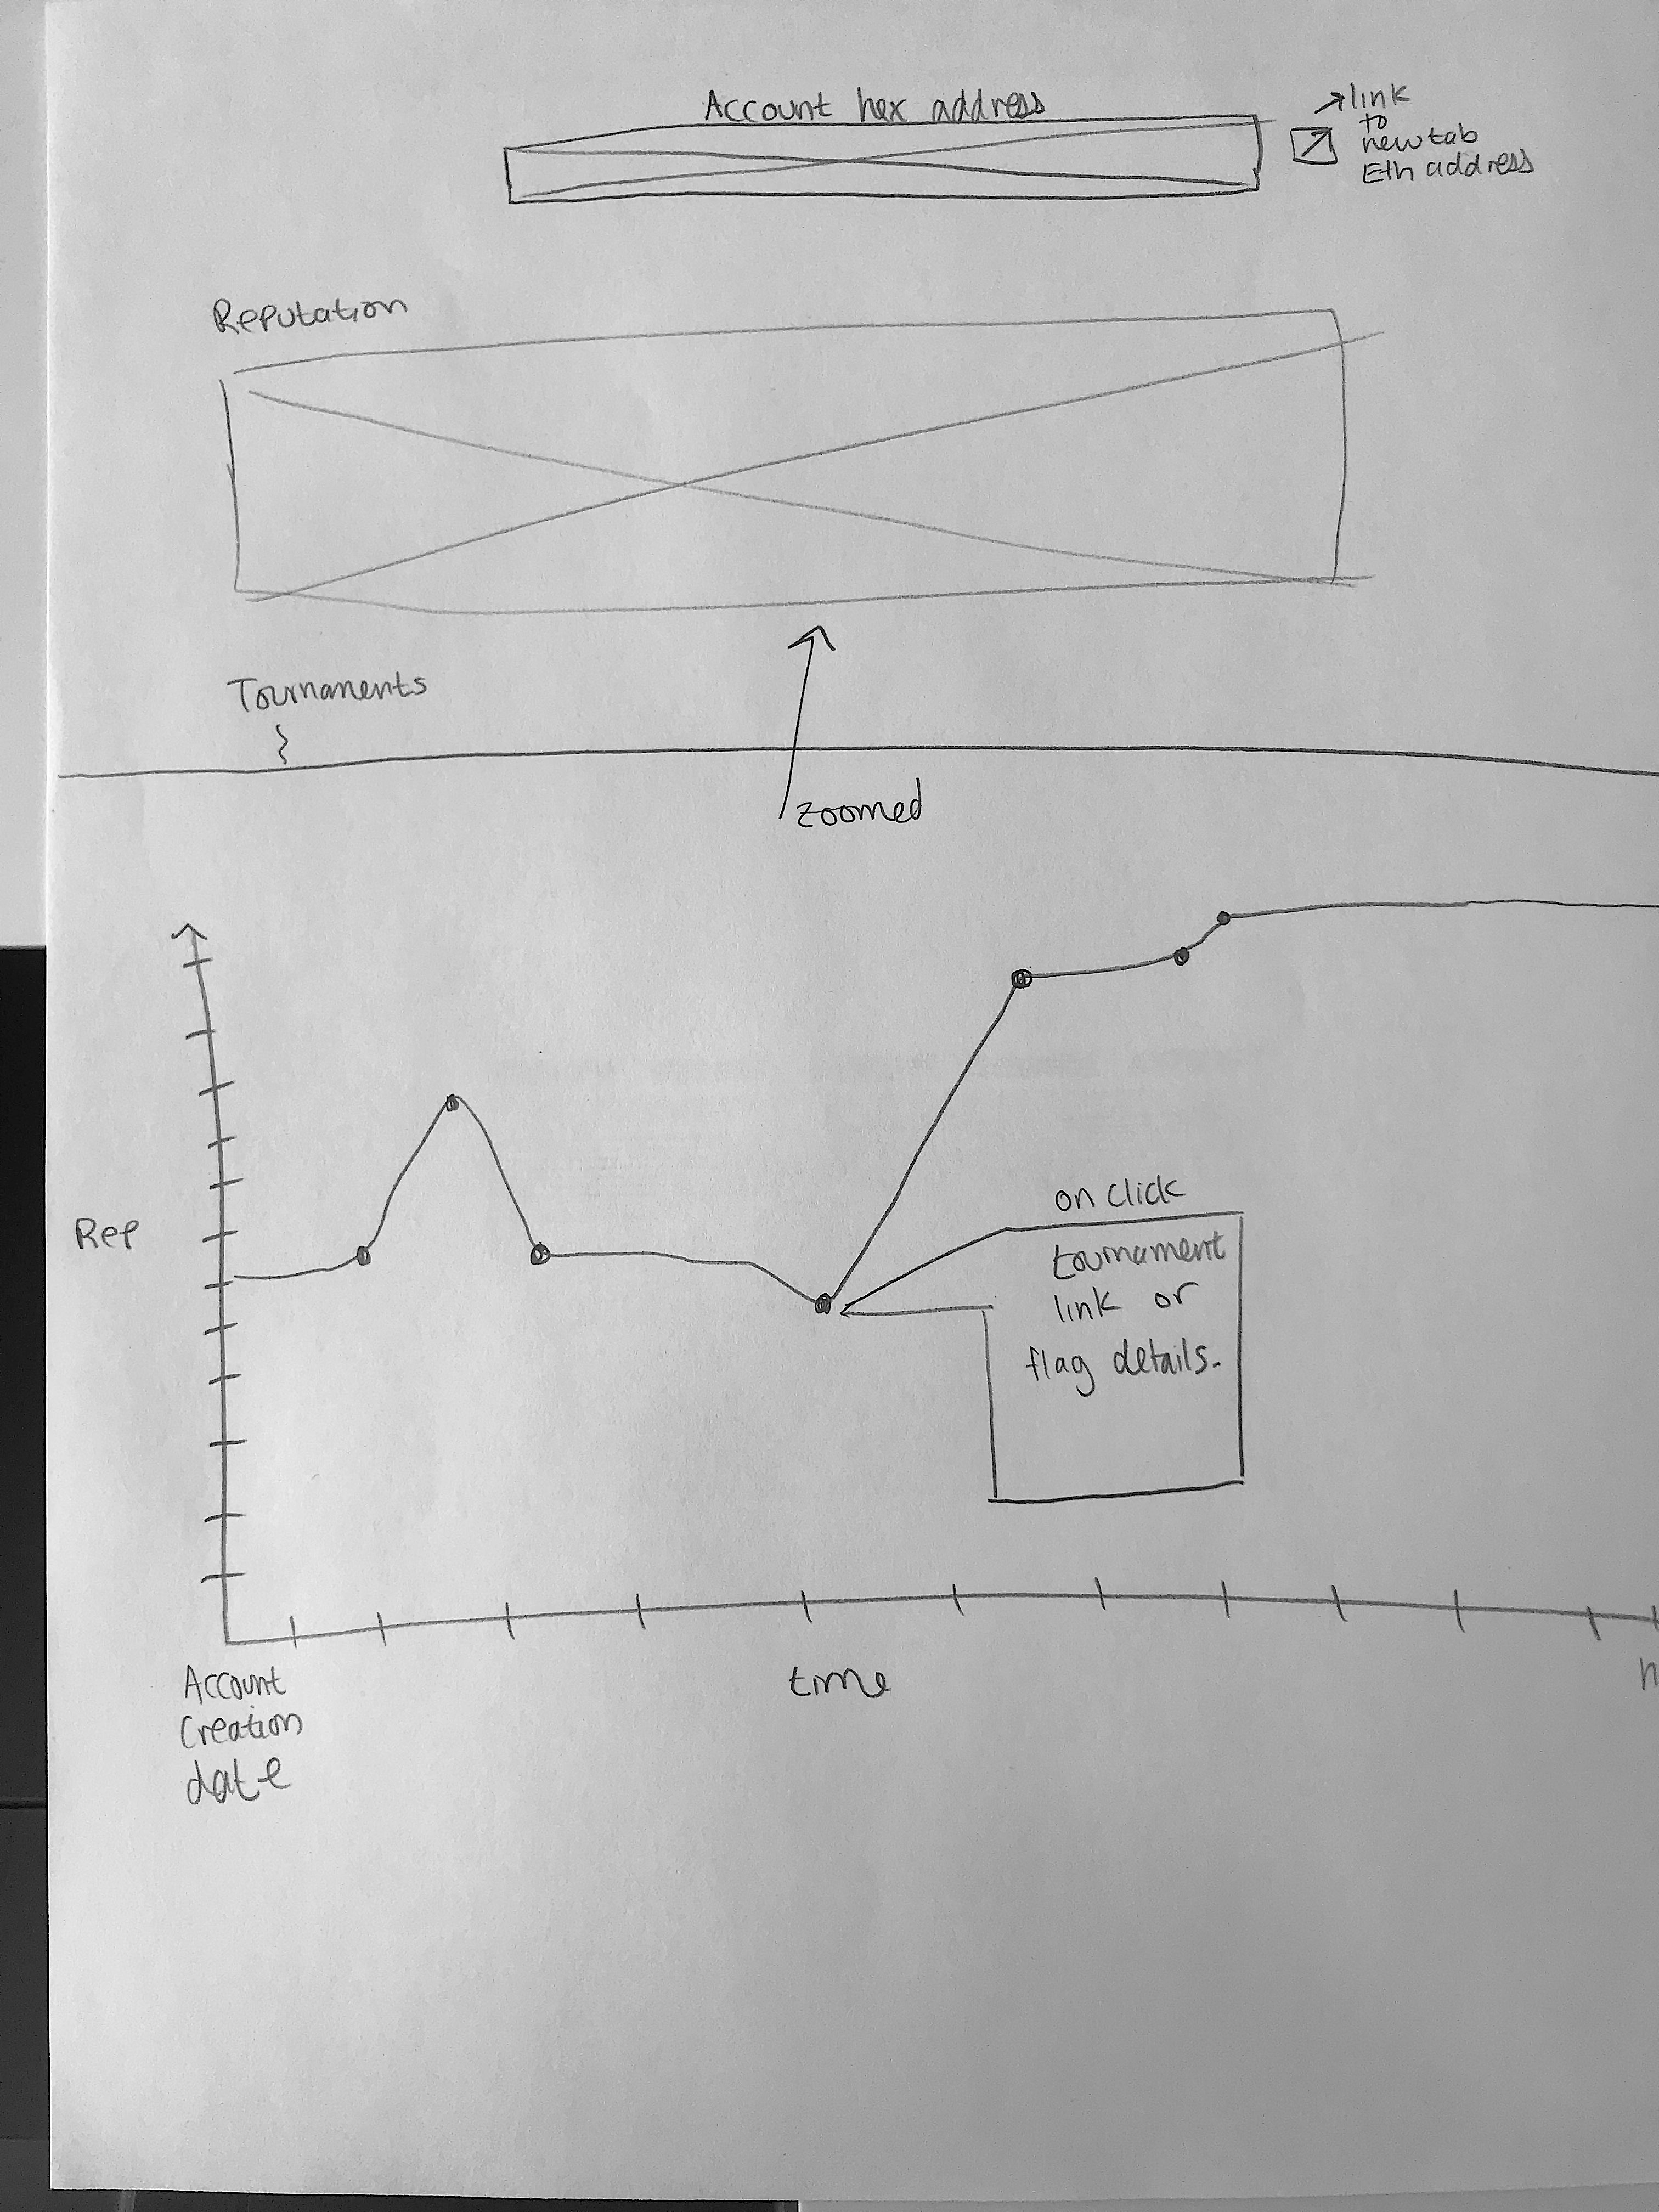 Account hex address
link
to
new tab
Eth address
Reputation
Tournaments
zoomed
Rep
on click
tournament
link or
flag details.
Account
Creation
date
time